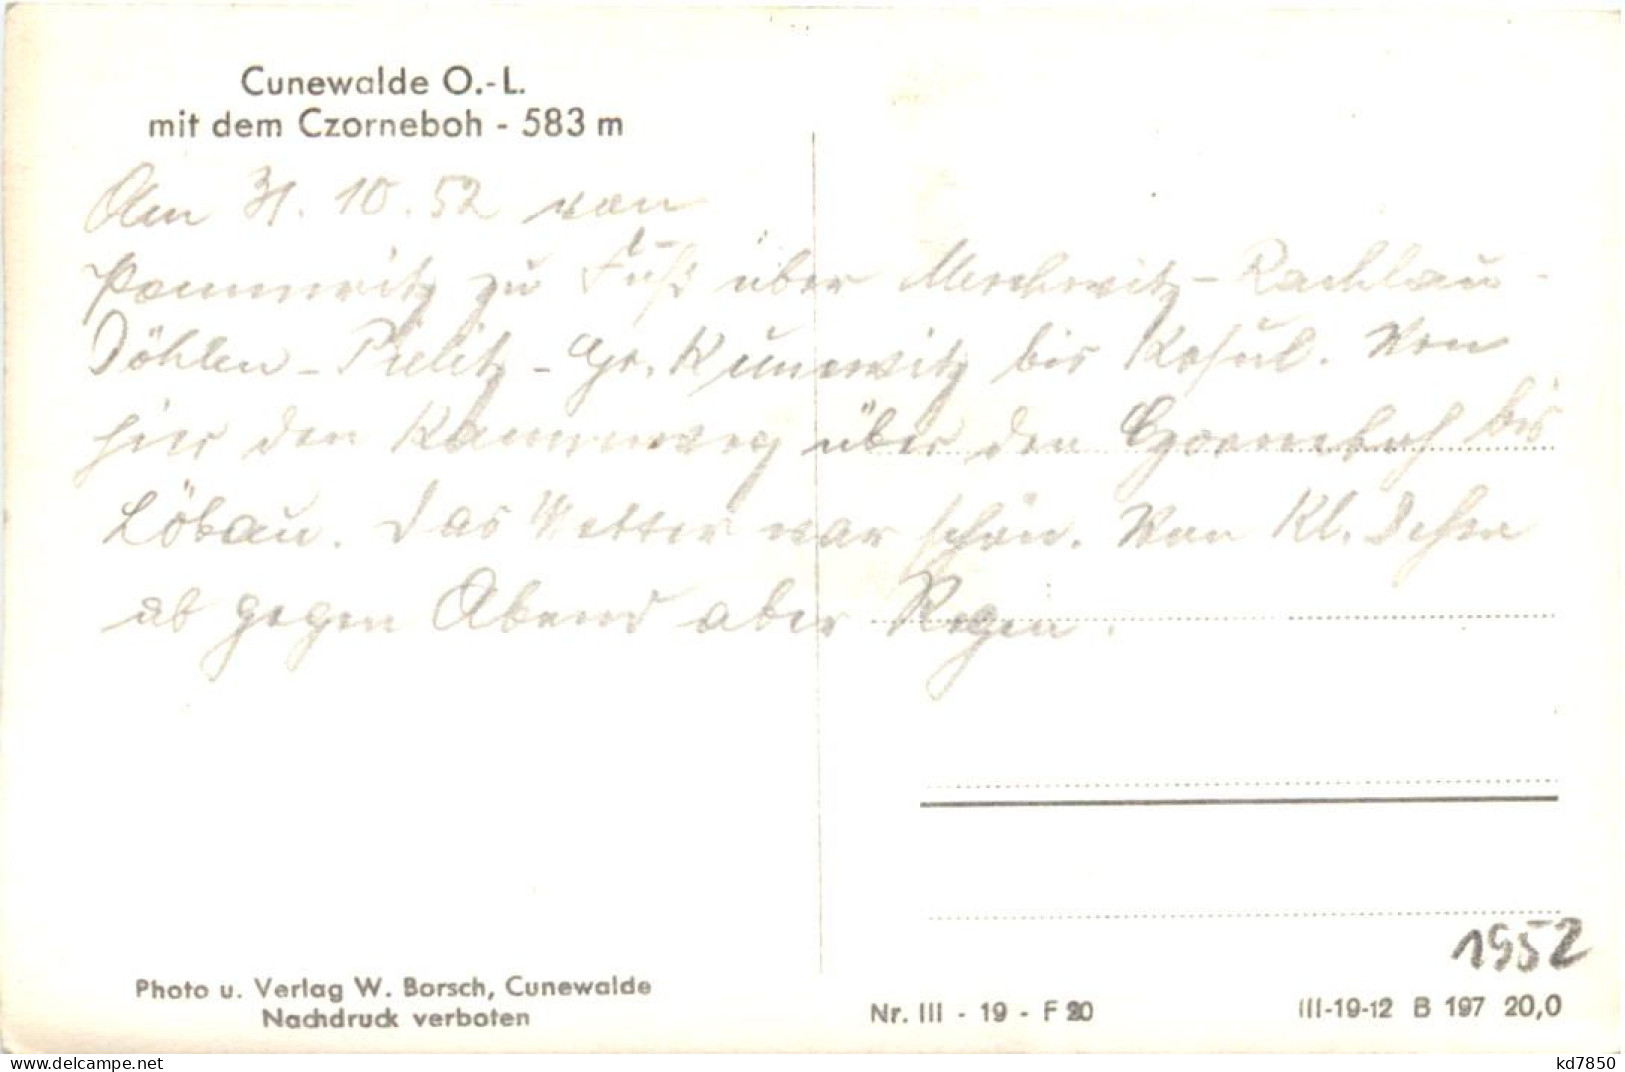 Cunewalde O.-L.
mit dem Czorneboh - 583 m
Am 31.10.52 von
Pommritz zu Fuß über Meschwitz - Rachlau -
Döhlen - Pielitz - Gr. Kunewitz bis Kosul. Von
hier den Kammweg über den Czorneboh bis
Löbau. Das Wetter war schön. Von Kl. Dehsa
ab gegen Abend aber Regen.
1952
Photo u. Verlag W. Borsch, Cunewalde
Nachdruck verboten
Nr. III - 19 - F 20
III-19-12 B 197 20,0
kd7850